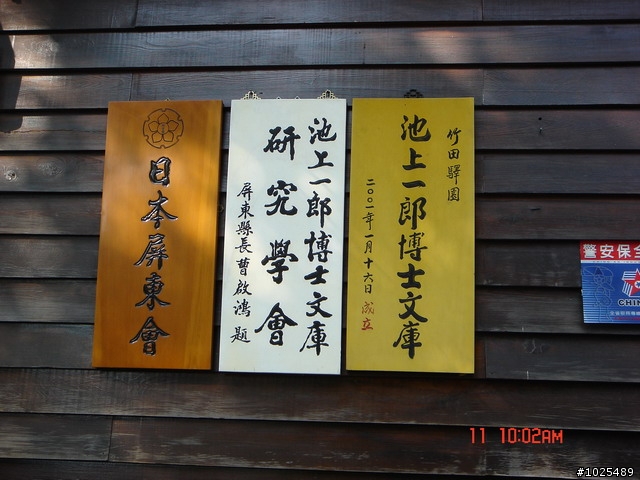 日本屏東會
池上一郎博士文庫
研究學會
屏東縣長曹啟鴻 題
竹田驛園
池上一郎博士文庫
二〇〇一年一月十六日成立
警安保全
CHIN
11 10:02AM
#1025489